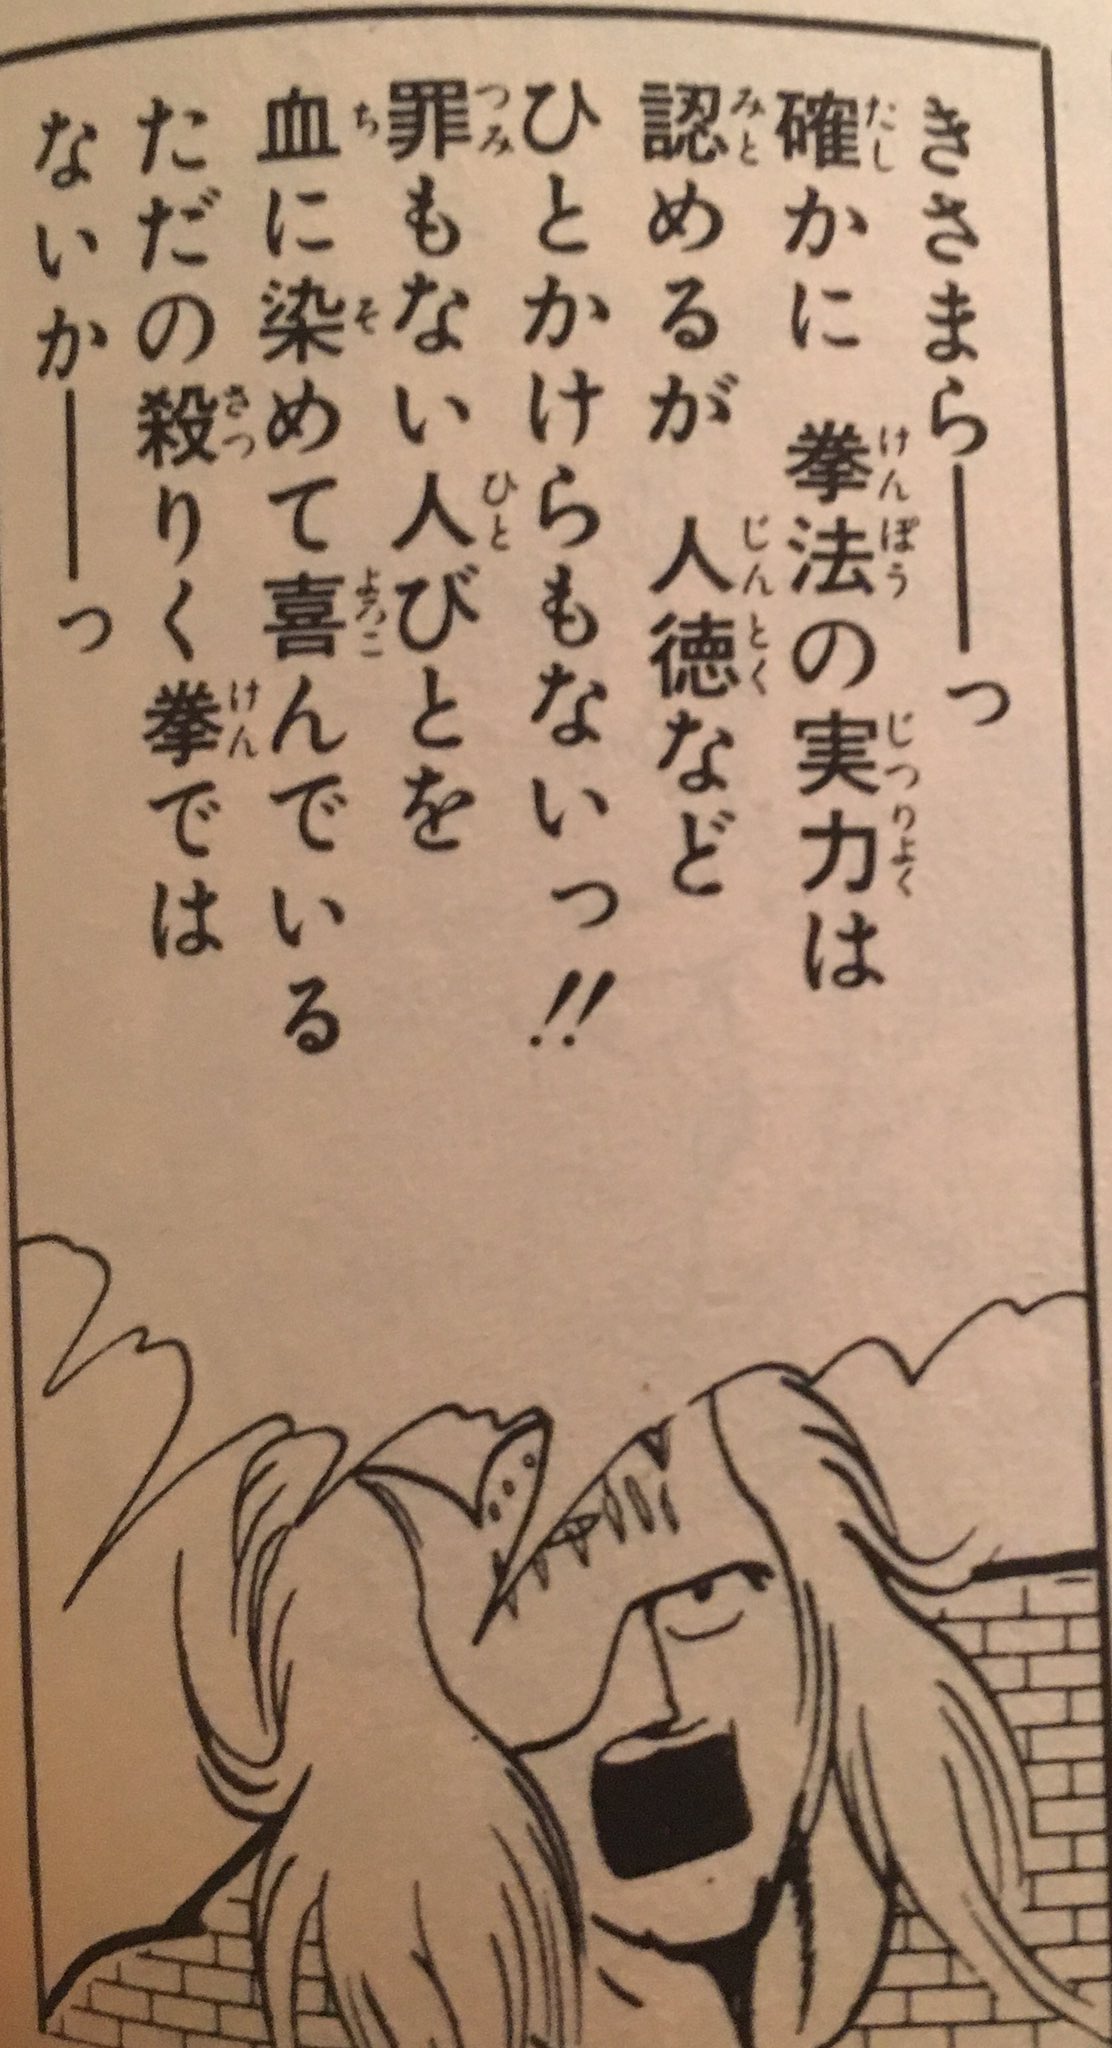 きさまら━━っ
確かに 拳法の実力は
認めるが 人徳など
ひとかけらもないっ!!
罪もない人びとを
血に染めて喜んでいる
ただの殺りく拳では
ないか━━っ